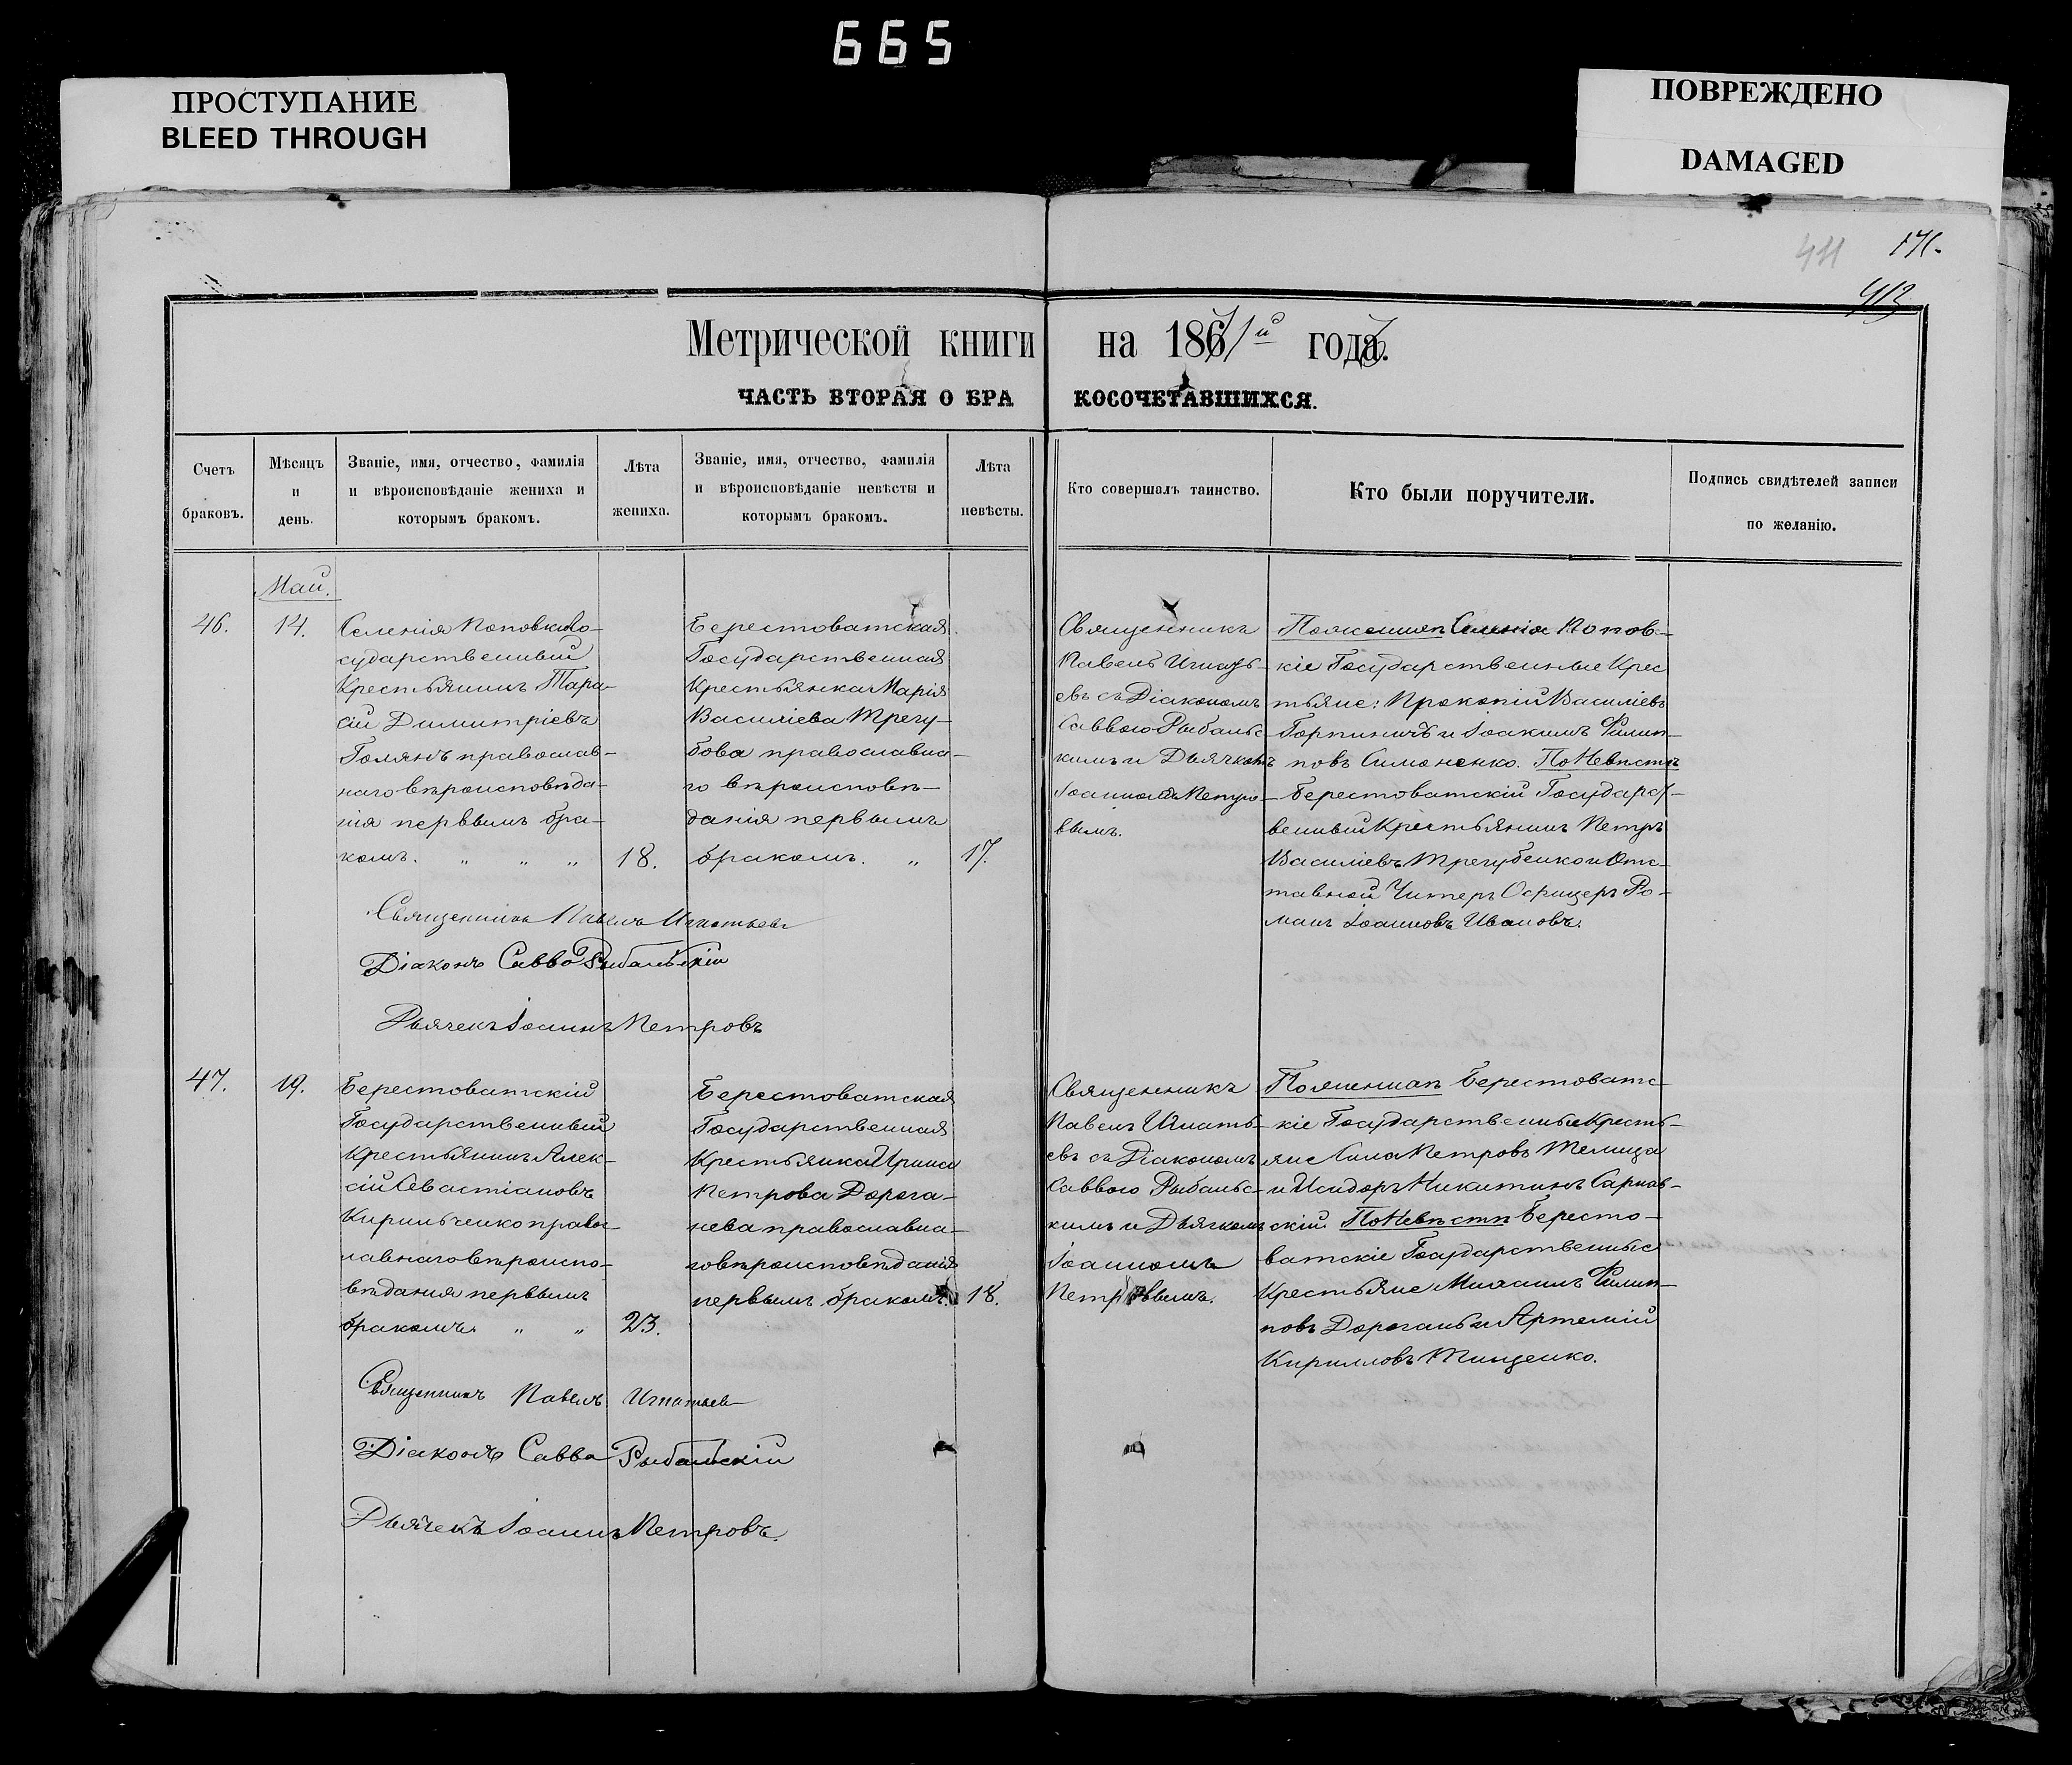 665
ПРОСТУПАНИЕ
BLEED THROUGH
ПОВРЕЖДЕНО
DAMAGED
411
171.
413
Метрической книги на 1871й годъ.
ЧАСТЬ ВТОРАЯ О БРАКОСОЧЕТАВШИХСЯ.
Счетъ браковъ.
Мѣсяцъ и день.
Званіе, имя, отчество, фамилія
и вѣроисповѣданіе жениха и
которымъ бракомъ.
Лѣта жениха.
Званіе, имя, отчество, фамилія
и вѣроисповѣданіе невѣсты и
которымъ бракомъ.
Лѣта невѣсты.
Кто совершалъ таинство.
Кто были поручители.
Подпись свидѣтелей записи
по желанію.
Май.
46.
14.
Селенія Поповки Го-
сударственный
Крестьянинъ Тара-
сій Димитріевъ
Голянъ православ-
наго вѣроисповѣда-
нія первымъ бра-
комъ. " " "
18.
Берестоватская
Государственная
Крестьянка Марія
Василіева Трегу-
бова православна-
го вѣроисповѣ-
данія первымъ
бракомъ. "
17.
Священникъ
Павелъ Игнать-
евъ съ Діакономъ
Саввою Рыбальс-
кимъ и Дьячкомъ
Іоанномъ Петро-
вымъ.
По женихѣ Селенія Попов-
кіе Государственные Крес
тьяне: Прокопій Василіевъ
Горпиничъ и Іоакимъ Филип-
повъ Симоненко. По Невѣстѣ
Берестоватскій Государст-
венный Крестьянинъ Петръ
Василіевъ Трегубенко и Отс-
тавной Унтеръ Офицеръ Ро-
манъ Іоанновъ Ивановъ.
Священникъ Павелъ Игнатьевъ
Діаконъ Савва Рыбальскій
Дьячекъ Іоаннъ Петровъ
47.
19.
Берестоватскій
Государственный
Крестьянинъ Алек-
сій Севастіановъ
Кирильченко правос-
лавнаго вѣроиспо-
вѣданія первымъ
бракомъ. " "
23.
Берестоватская
Государственная
Крестьянка Ирина
Петрова Дорога-
нева православна-
го вѣроисповѣданія
первымъ бракомъ.
18.
Священникъ
Павелъ Игнать-
евъ съ Діакономъ
Саввою Рыбальс-
кимъ и Дьячкомъ
Іоанномъ
Петровымъ.
По женихѣ Берестоватс-
кіе Государственные Кресть-
яне Сила Петровъ Телица
и Исидоръ Никитинъ Сарнав-
скій. По Невѣстѣ Бересто-
ватскіе Государственные
Крестьяне Михаилъ Филип-
повъ Дорогань и Артемій
Кирилловъ Тищенко.
Священникъ Павелъ Игнатьевъ
Діаконъ Савва Рыбальскій
Дьячекъ Іоаннъ Петровъ.